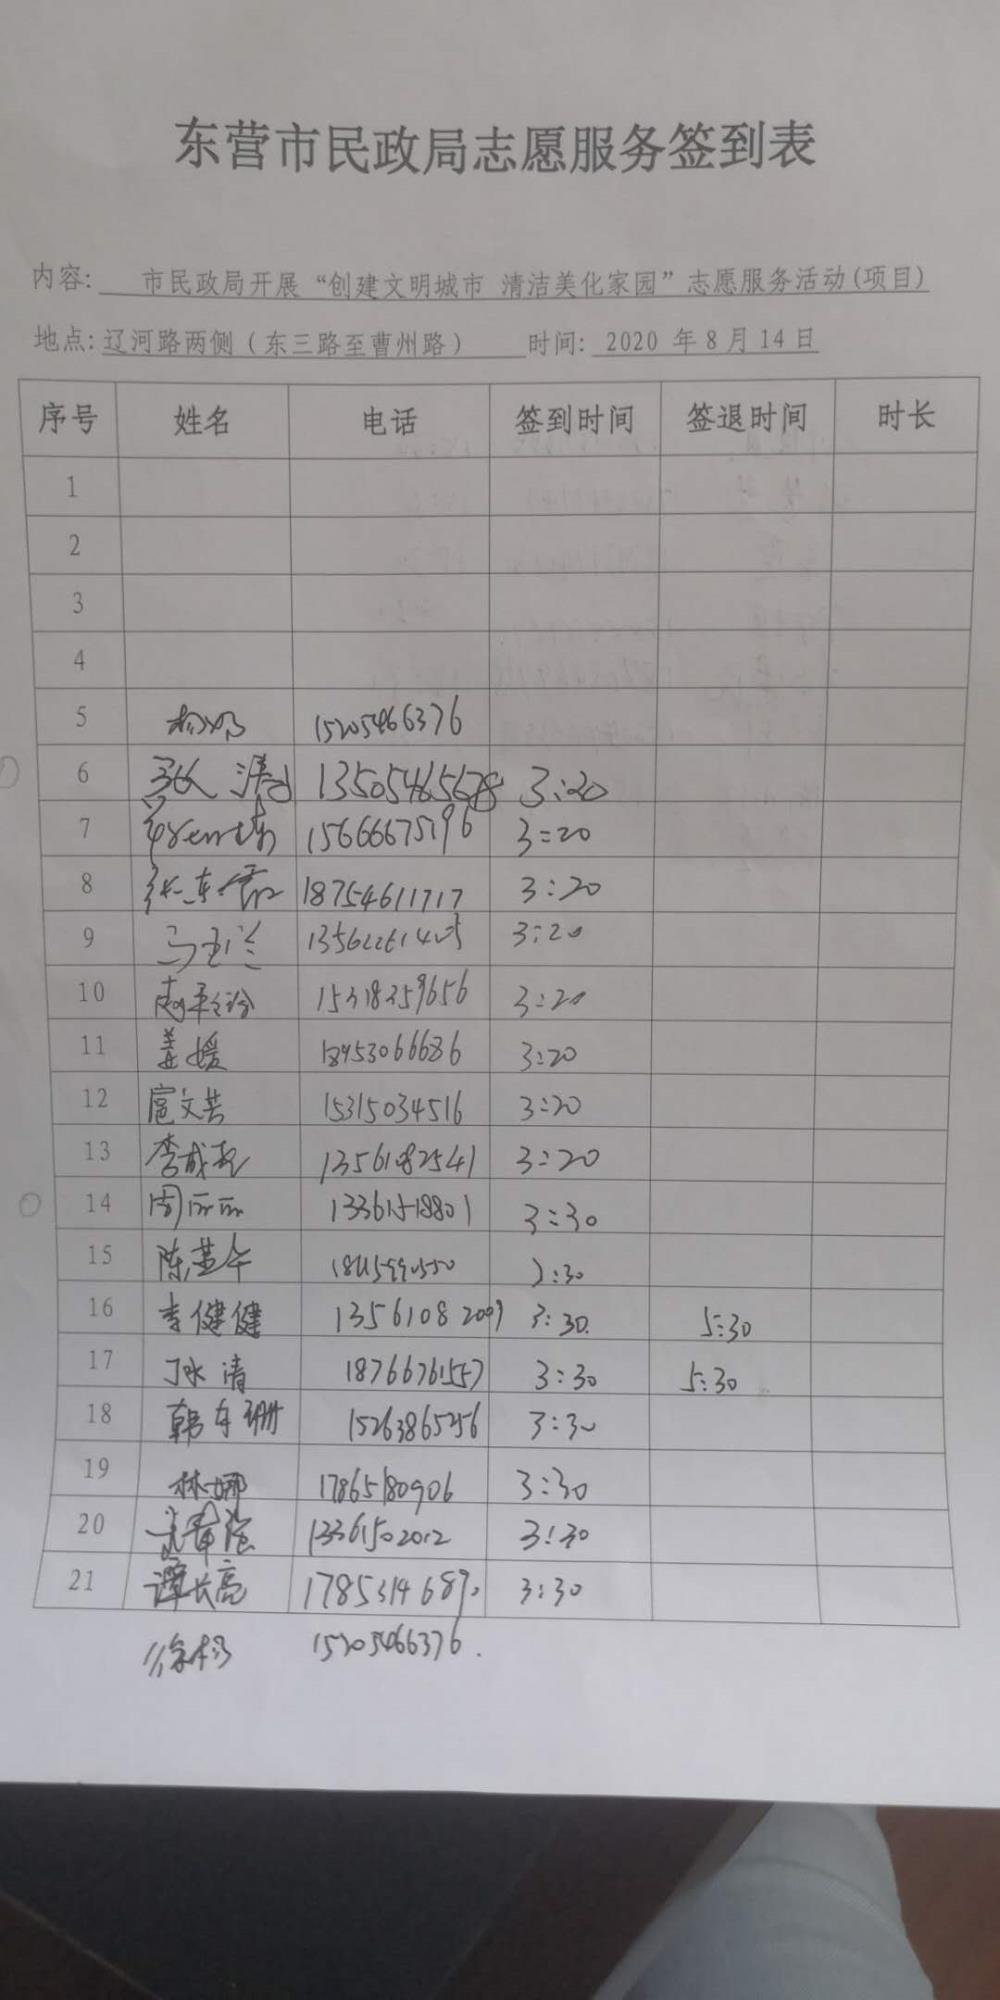 东营市民政局志愿服务签到表
内容: 市民政局开展“创建文明城市 清洁美化家园”志愿服务活动(项目)
地点: 辽河路两侧（东三路至曹州路） 时间: 2020 年 8 月 14 日
序号 姓名 电话 签到时间 签退时间 时长
1
2
3
4
5 15205466376
6 13505465678 3:20
7 15666675196 3:20
8 18754611717 3:20
9 马玉兰 3:20
10 15318359656 3:20
11 姜媛 18953066686 3:20
12 扈文芸 15315034516 3:20
13 13561082541 3:20
14 周丽丽 13361518801 3:30
15 :30
16 李健健 13561082009 3:30 5:30
17 清 18766761557 3:30 5:30
18 韩 珊 15263865256 3:30
19 林娜 17865180906 3:30
20 13361502012 3:30
21 谭长亮 17853146890 3:30
徐杨 15205466376.